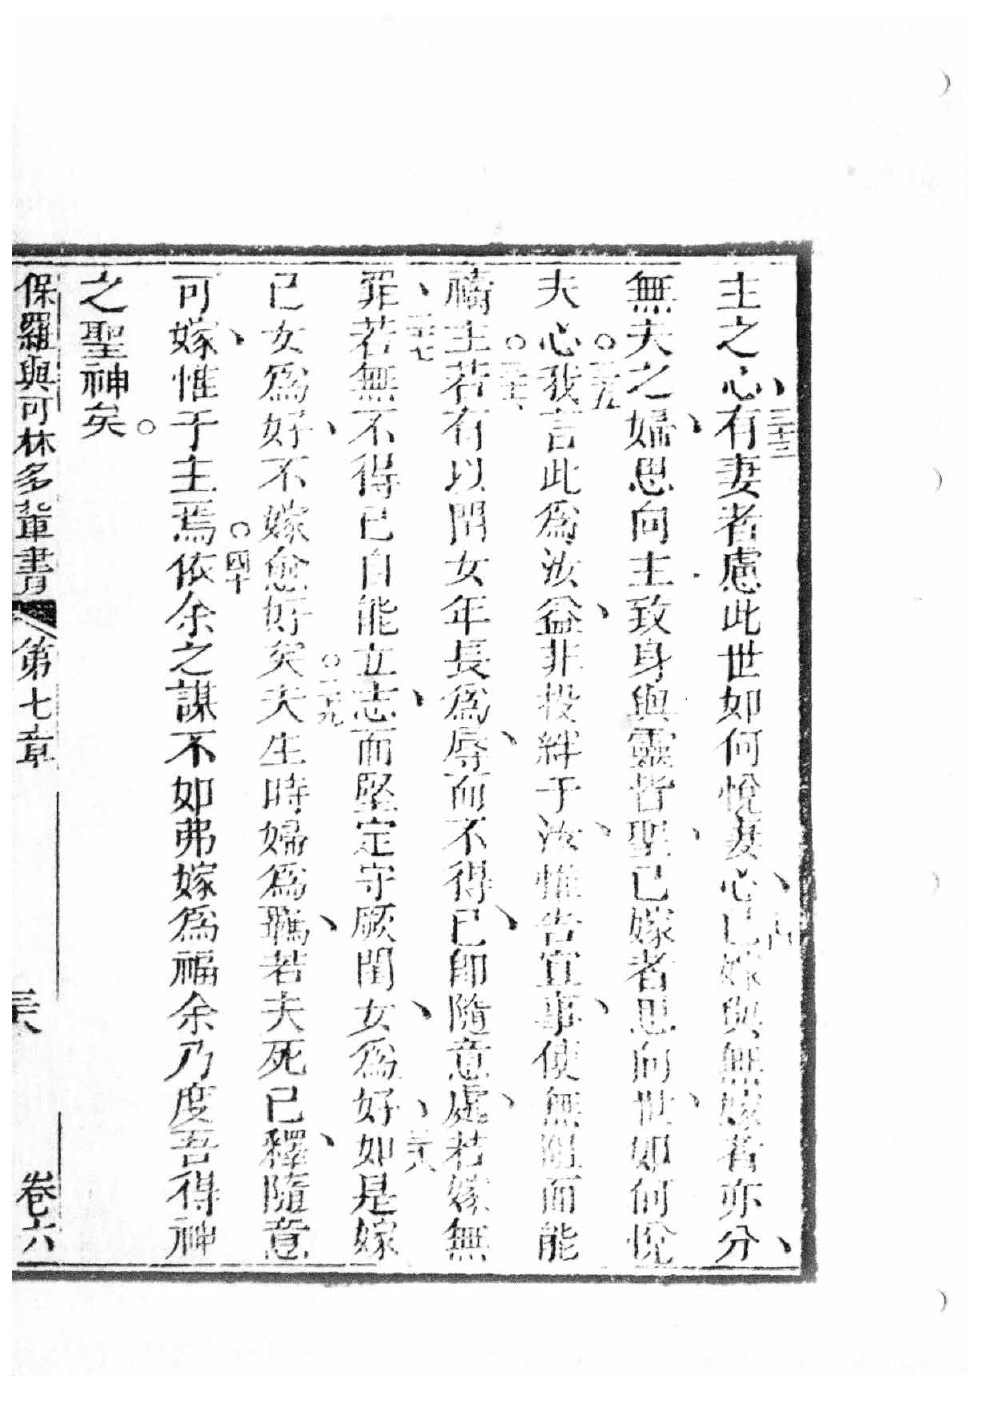 主之心三十三有妻者慮此世如何悅妻心三四已嫁與無嫁者亦分
無夫之婦思向主致身與靈皆聖已嫁者思向世如何悅
夫心三五我言此為汝益非投絆于汝惟告宜事使無阻而能
禱主三六若有以閨女年長為辱而不得已即隨意處若嫁無
罪三七若無不得已自能立志而堅定守厥閨女為好三八如是嫁
己女為好不嫁愈好矣三九夫夫生時婦為羈若夫死已釋隨意
可嫁惟于主焉四十依余之謀不如弗嫁為福余乃度吾得神
之聖神矣
保羅與可林多輩書 第七章 三八 卷六